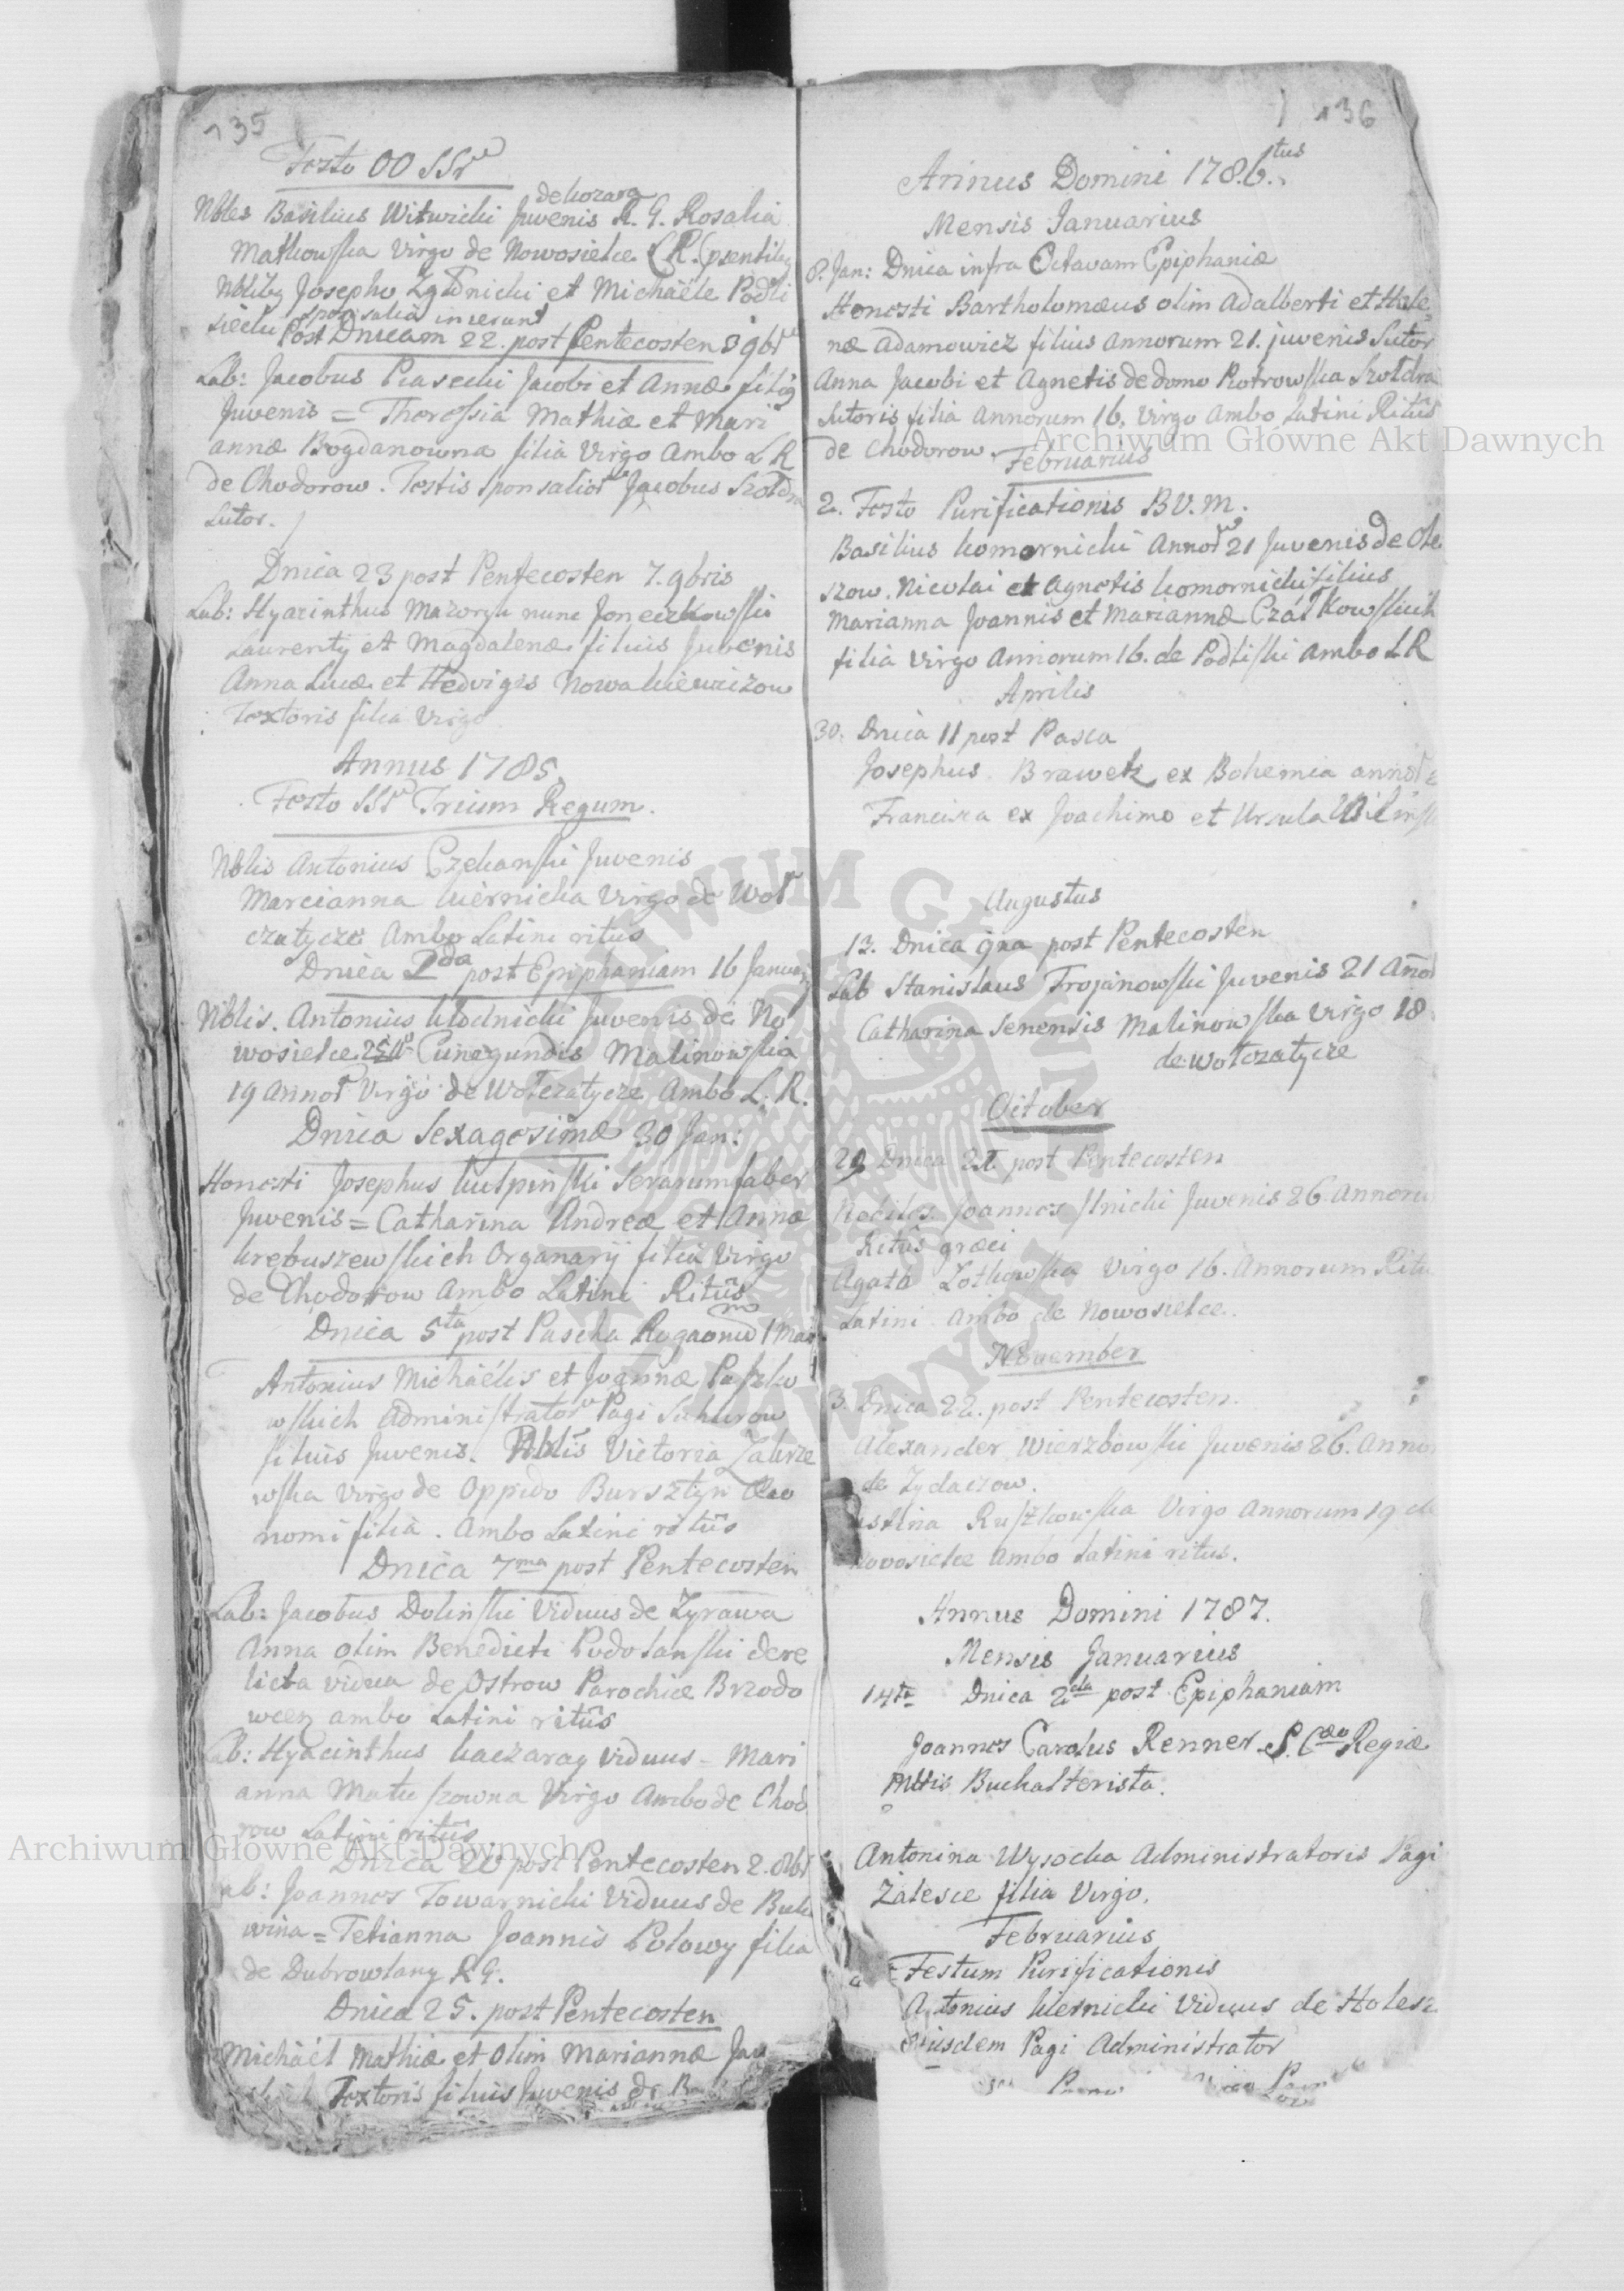 135
Festo OO SSr
de kozara
Nbles Basilius Witwicki Juvenis R. G. Rosalia
Matkowska Virgo de Nowosielce L R.
Josepho et Michaele Podli
sponsalia inierunt
Post Dnicam 22. post Pentecosten 3 9br
Lab: Jacobus Piasecki Jacobi et Annæ filig
Juvenis = Theressia Mathiæ et Mari
annæ Bogdanowna filia Virgo Ambo L R
de Chodorow. Testis Sponsalior Jacobus Szoldra
Sutor.
Dnica 23 post Pentecosten 7. 9bris
Lab: Hyacinthus Mazorga nunc
Laurenty et Magdalenæ filius Juvenis
Anna Lucæ et Hedvigis Nowakiewiczow
Textoris filia Virgo
Annus 1785
Festo SSr Trium Regum.
Nblis Antonius Czekanski Juvenis
Marcianna kiernicka Virgo de Wol
czatycze Ambo Latini ritus
Dnica 2da post Epiphaniam 16 January
Nblis. Antonius kłodnicki Juvenis de No
wosielce Cunegundis Malinowska
19 Annor Virgo de Wołczatycze Ambo L. R.
Dnica Sexagesimæ 30 Jan:
Honesti Josephus kulpinski Serarumfaber
Juvenis = Catharina Andreæ et Annæ
krebuszewskich Organarij filia Virgo
de Chodorow Ambo Latini Ritus
Dnica 5ta post Pascha Rogaonu 1 Mai
Antonius Michaëlis et Joannæ Paszko
wskich Administrator Pagi Suhurow
filius Juvenis. Nblis Victoria Zakrze
wska Virgo de Oppido Bursztyn Oeco
nomi filia. Ambo Latini ritus
Dnica 7ma post Pentecosten
Lab: Jacobus Dolinski Viduus de Zyrawa
Anna olim Benedicti Podolanski dere
licta vidua de Ostrow Parochiæ Brzodo
wcen ambo Latini ritus
Lab: Hyacinthus kaczaray viduus = Mari
anna Matuszowna Virgo Ambo de Chod
row Latini ritus
Dnica 20 post Pentecosten 2. 8br
Lab: Joannes Towarnicki Viduus de Buko
wina = Tetianna Joannis Polowy filia
de Dubrowlany R G.
Dnica 25. post Pentecosten
Michaël Mathiæ et Olim Mariannæ
Textoris filius Juvenis de
136
Annus Domini 1786.tus
Mensis Januarius
8. Jan: Dnica infra Octavam Epiphaniæ
Honesti Bartholomæus olim Adalberti et Hele
næ Adamowicz filius Annorum 21. juvenis Sutor
Anna Jacobi et Agnetis de domo Piotrowska Szoldra
Sutoris filia Annorum 16. Virgo Ambo Latini Ritus
de Chodorow.
Februarius
2. Festo Purificationis B V. M.
Basilius komornicki Annor 21 Juvenis de Ole
szow. Nicolai et Agnetis komornicki filius
Marianna Joannis et Mariannæ Czaykowskich
filia Virgo Annorum 16. de Podliski Ambo L R
Aprilis
30. Dnica 11 post Pasca
Josephus Brawetz ex Bohemia annor
Francisca ex Joachimo et Ursula
Augustus
13. Dnica 9na post Pentecosten
Lab Stanislaus Trojanowski Juvenis 21 Annor
Catharina Senensis Malinowska Virgo 18
de Wołczatycze
October
29 Dnica 21 post Pentecosten
Nobiles Joannes Juvenis 26. Annoru
Ritus græci
Agata Zotkowska Virgo 16. Annorum Ritu
Latini Ambo de Nowosielce.
November
3. Dnica 22. post Pentecosten.
Alexander Wierzbowski Juvenis 26. Annor
de Zydaczow.
Ruszkowska Virgo Annorum 19 de
Novosielce Ambo Latini ritus.
Annus Domini 1787.
Mensis Januarius
14ta Dnica 2da post Epiphaniam
Joannes Carolus Renner S. Cæo Regiæ
Mttis Buchalterista.
Antonina Wysocka Administratoris Pagi
Zalesce filia Virgo.
Februarius
Festum Purificationis
Antonius kiernicki Viduus de Holesz
ejusdem Pagi Administrator
Archiwum Główne Akt Dawnych
Archiwum Główne Akt Dawnych
ARCHIWUM GŁÓWNE AKT DAWNYCH